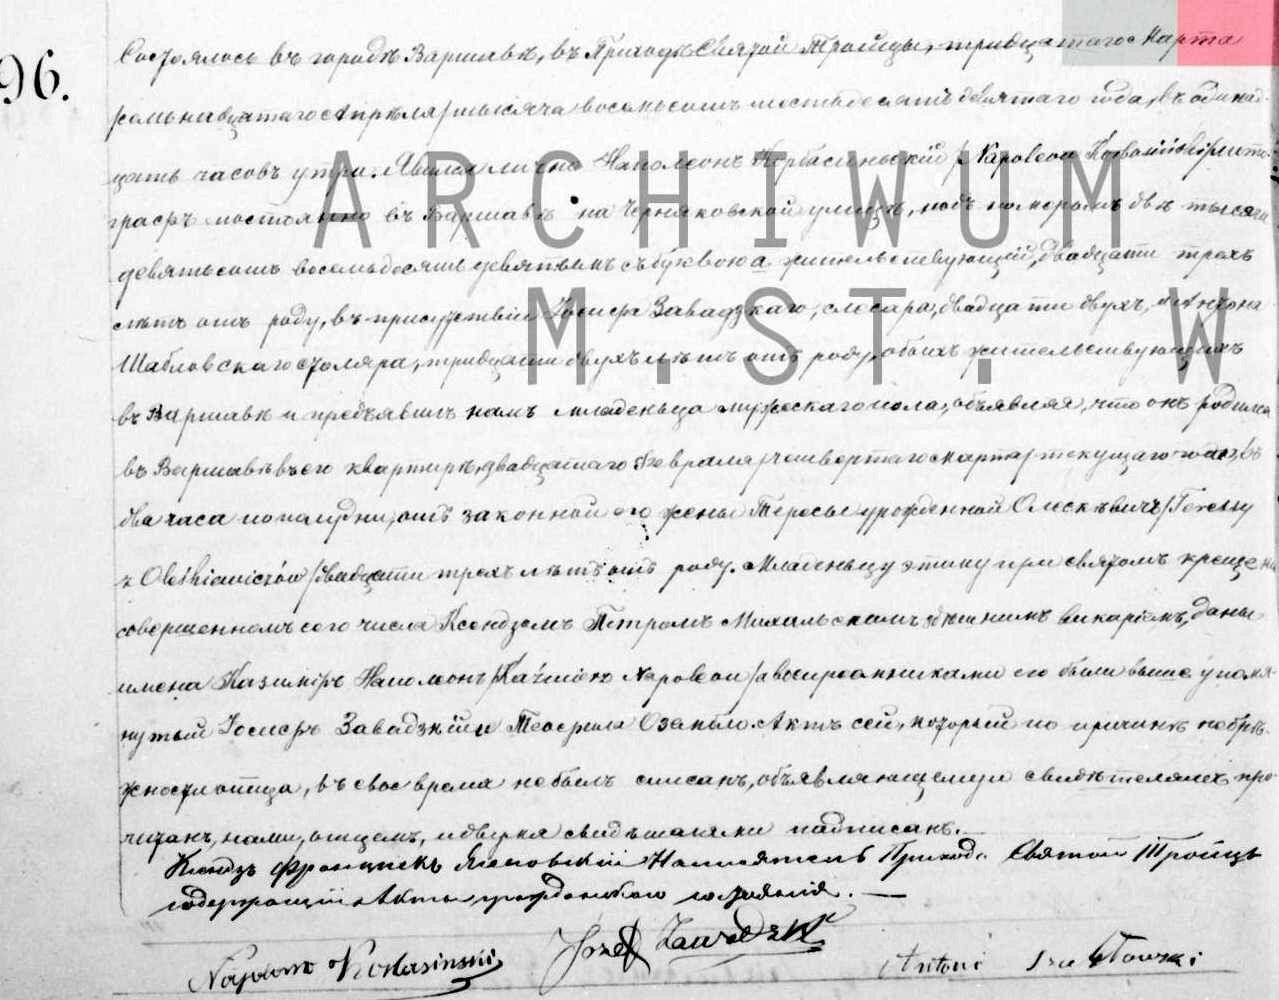 96.
Состоялось въ городѣ Варшавѣ, въ Приходѣ Святой Троицы, тридцатаго Марта
Апрѣля тысяча восемьсотъ шестьдесятъ девятаго года, въ одинад-
цать часовъ утра. Явился лично Наполеонъ /Napoleon
графъ постоянно въ Варшавѣ на Черняковской улицѣ, подъ номеромъ двѣ тысячи
девятьсотъ восемьдесятъ девятымъ съ буквою а жительствующій, двадцати трехъ
лѣтъ отъ роду, въ присутствіи Іосифа Завадзкаго, слесаря, двадцати двухъ, и Антона
Шабловскаго столяра, тридцати двухъ лѣтъ отъ роду, обоихъ жительствующихъ
въ Варшавѣ и предъявилъ намъ младенца мужескаго пола, объявляя, что онъ родился
въ Варшавѣ въ его квартирѣ, двадцатаго Февраля /четвертаго Марта/ текущаго года, въ
два часа по полудни, отъ законной его жены Тересы урожденной Олескѣвичъ /Teressy
z Oleśkiewiczów/ двадцати трехъ лѣтъ отъ роду. Младенцу этому при святомъ крещеніи
совершенномъ сего числа Ксендзомъ Петромъ Михальскимъ здѣшнимъ викаріемъ, даны
имена Казимиръ Наполеонъ /Kaźmierz Napoleon/ а воспріемниками его были выше упомя-
нутый Іосифъ Завадзкій и Теофила Актъ сей, который по причинѣ небрѣ-
жности отца, въ свое время не былъ списанъ, объявляющему и свидѣтелямъ про-
читанъ, нами, отцемъ, и двумя свидѣтелями подписанъ.
Ксендзъ Францискъ Настоятель Прихода Святой Троицы
содержащій Акты гражданскаго состоянія.
Napoleon Józef Zawadzki Antoni Szabłowski
ARCHIWUM
M. ST. W